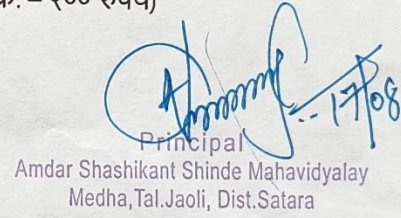 – २०० रुपये)
17/08
Principal
Amdar Shashikant Shinde Mahavidyalay
Medha,Tal.Jaoli, Dist.Satara